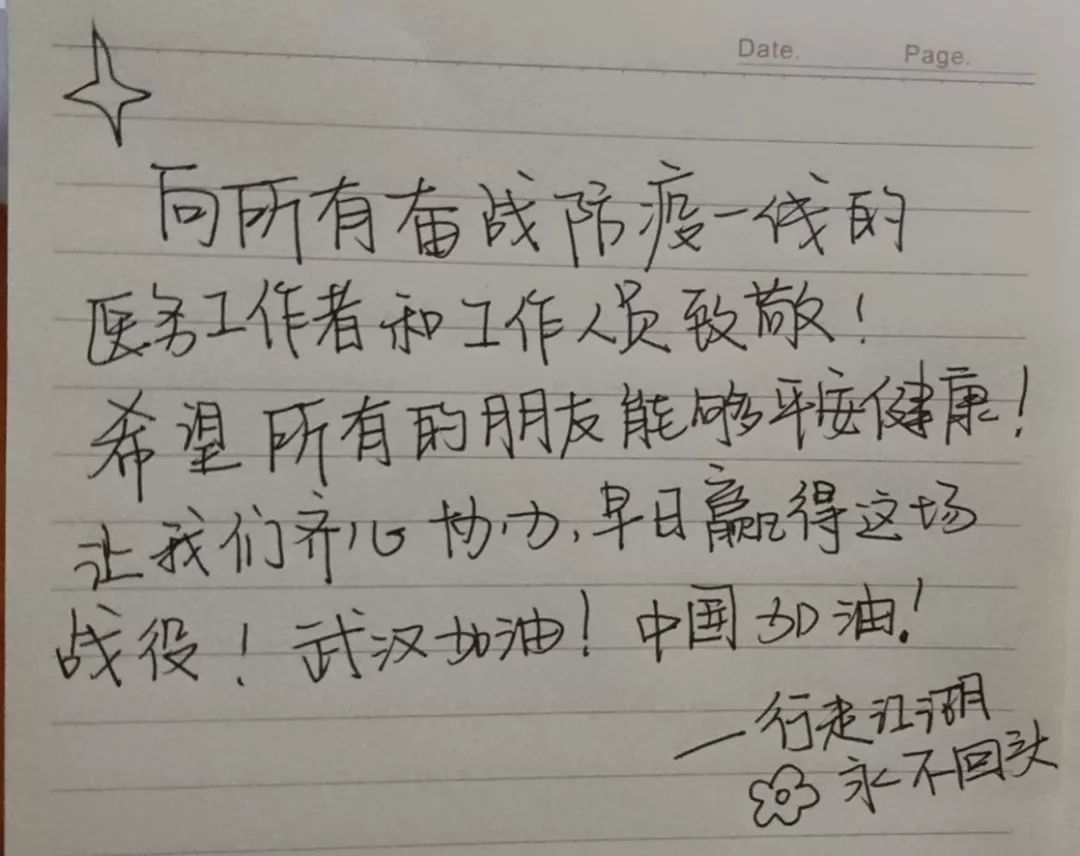 Date. Page.
向所有奋战防疫一线的
医务工作者和工作人员致敬！
希望所有的朋友能够平安健康！
让我们齐心协力,早日赢得这场
战役！武汉加油！中国加油！
—行走江湖
永不回头